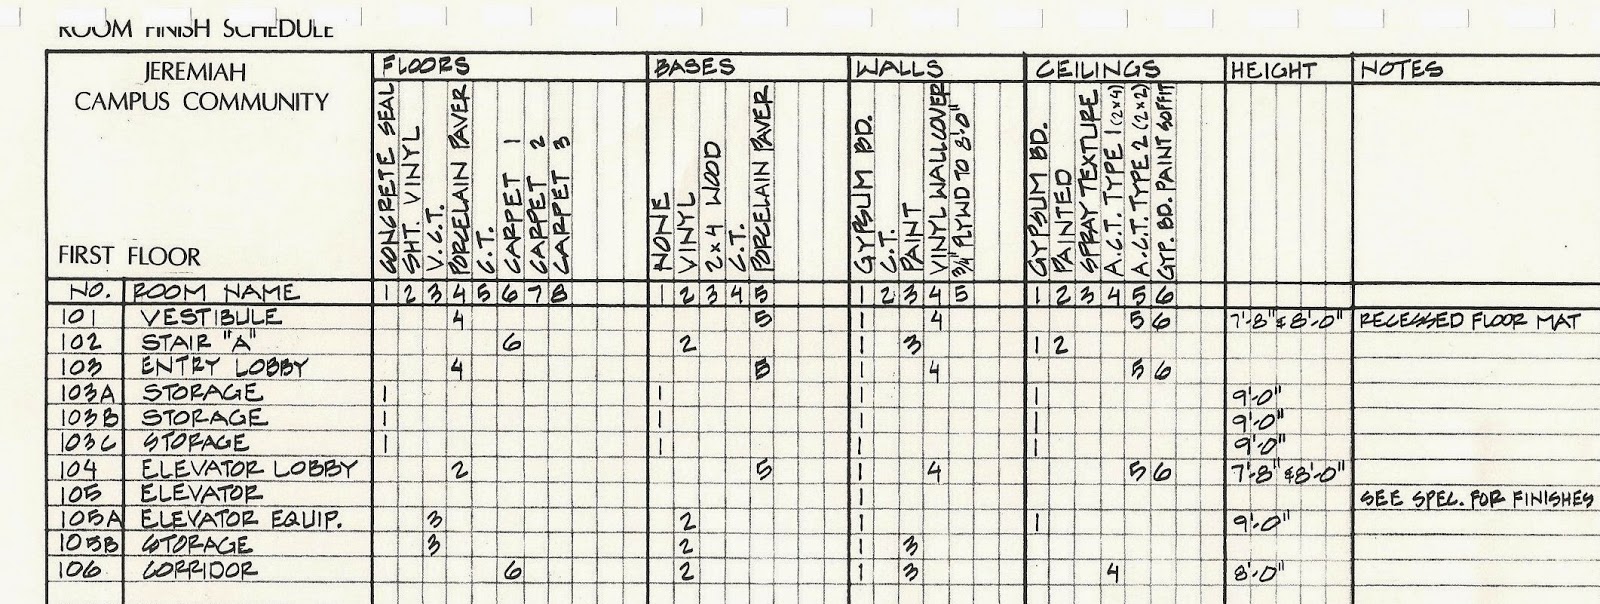 ROOM FINISH SCHEDULE
JEREMIAH
CAMPUS COMMUNITY
FIRST FLOOR
FLOORS BASES WALLS CEILINGS HEIGHT NOTES
CONCRETE SEAL
SHT. VINYL
V.C.T.
PORCELAIN PAVER
C.T.
CARPET 1
CARPET 2
CARPET 3
NONE
VINYL
2x4 WOOD
C.T.
PORCELAIN PAVER
GYPSUM BD.
C.T.
PAINT
VINYL WALLCOVER
3/4" PLYWD TO 8'-0"
GYPSUM BD.
PAINTED
SPRAY TEXTURE
A.C.T. TYPE 1 (2x4)
A.C.T. TYPE 2 (2x2)
GYP. BD. PAINT SOFFIT
NO. ROOM NAME 1 2 3 4 5 6 7 8 1 2 3 4 5 1 2 3 4 5 1 2 3 4 5 6
101 VESTIBULE 4 5 1 4 5 6 7'-8" & 8'-0" RECESSED FLOOR MAT
102 STAIR "A" 6 2 1 3 1 2
103 ENTRY LOBBY 4 5 1 4 5 6
103A STORAGE 1 1 1 1 9'-0"
103B STORAGE 1 1 1 1 9'-0"
103C STORAGE 1 1 1 1 9'-0"
104 ELEVATOR LOBBY 2 5 1 4 5 6 7'-8" & 8'-0"
105 ELEVATOR 1 SEE SPEC. FOR FINISHES
105A ELEVATOR EQUIP. 3 2 1 1 9'-0"
105B STORAGE 3 2 1 3
106 CORRIDOR 6 2 1 3 4 8'-0"